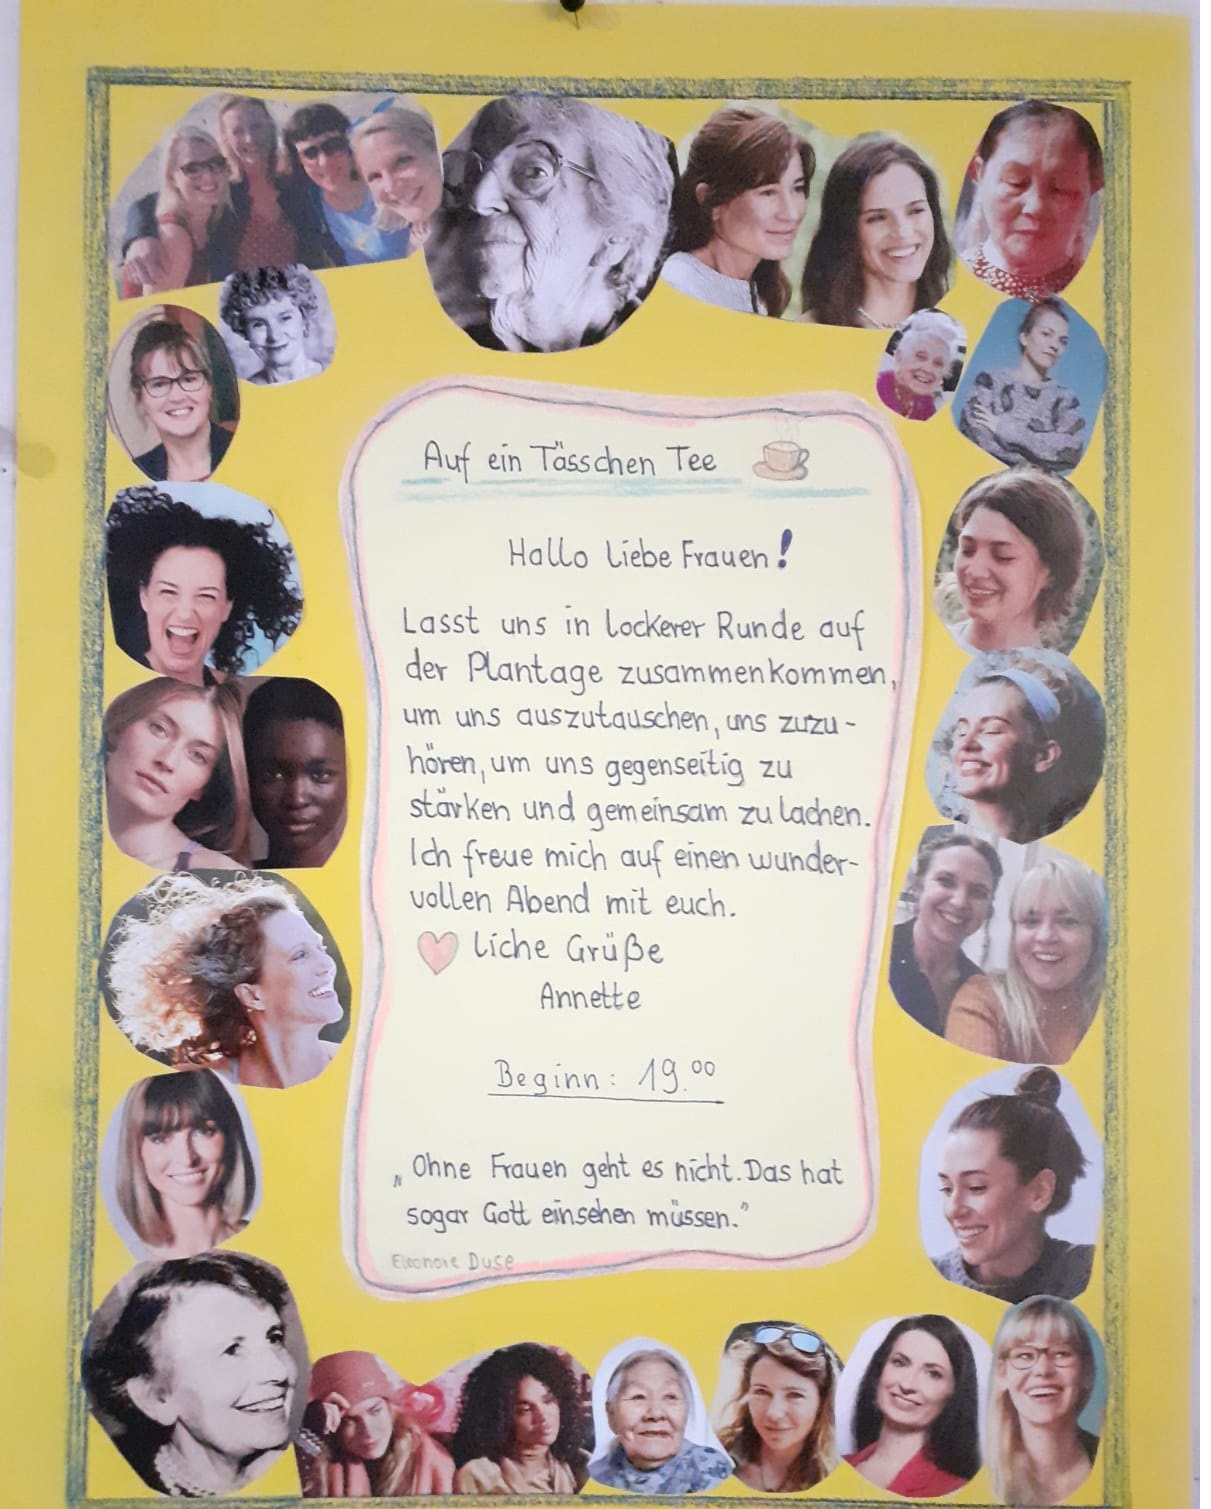 Auf ein Tässchen Tee
Hallo liebe Frauen!
Lasst uns in lockerer Runde auf
der Plantage zusammenkommen,
um uns auszutauschen, uns zuzu-
hören, um uns gegenseitig zu
stärken und gemeinsam zu lachen.
Ich freue mich auf einen wunder-
vollen Abend mit euch.
liche Grüße
Annette
Beginn: 19.00
„Ohne Frauen geht es nicht. Das hat
sogar Gott einsehen müssen."
Eleonore Duse